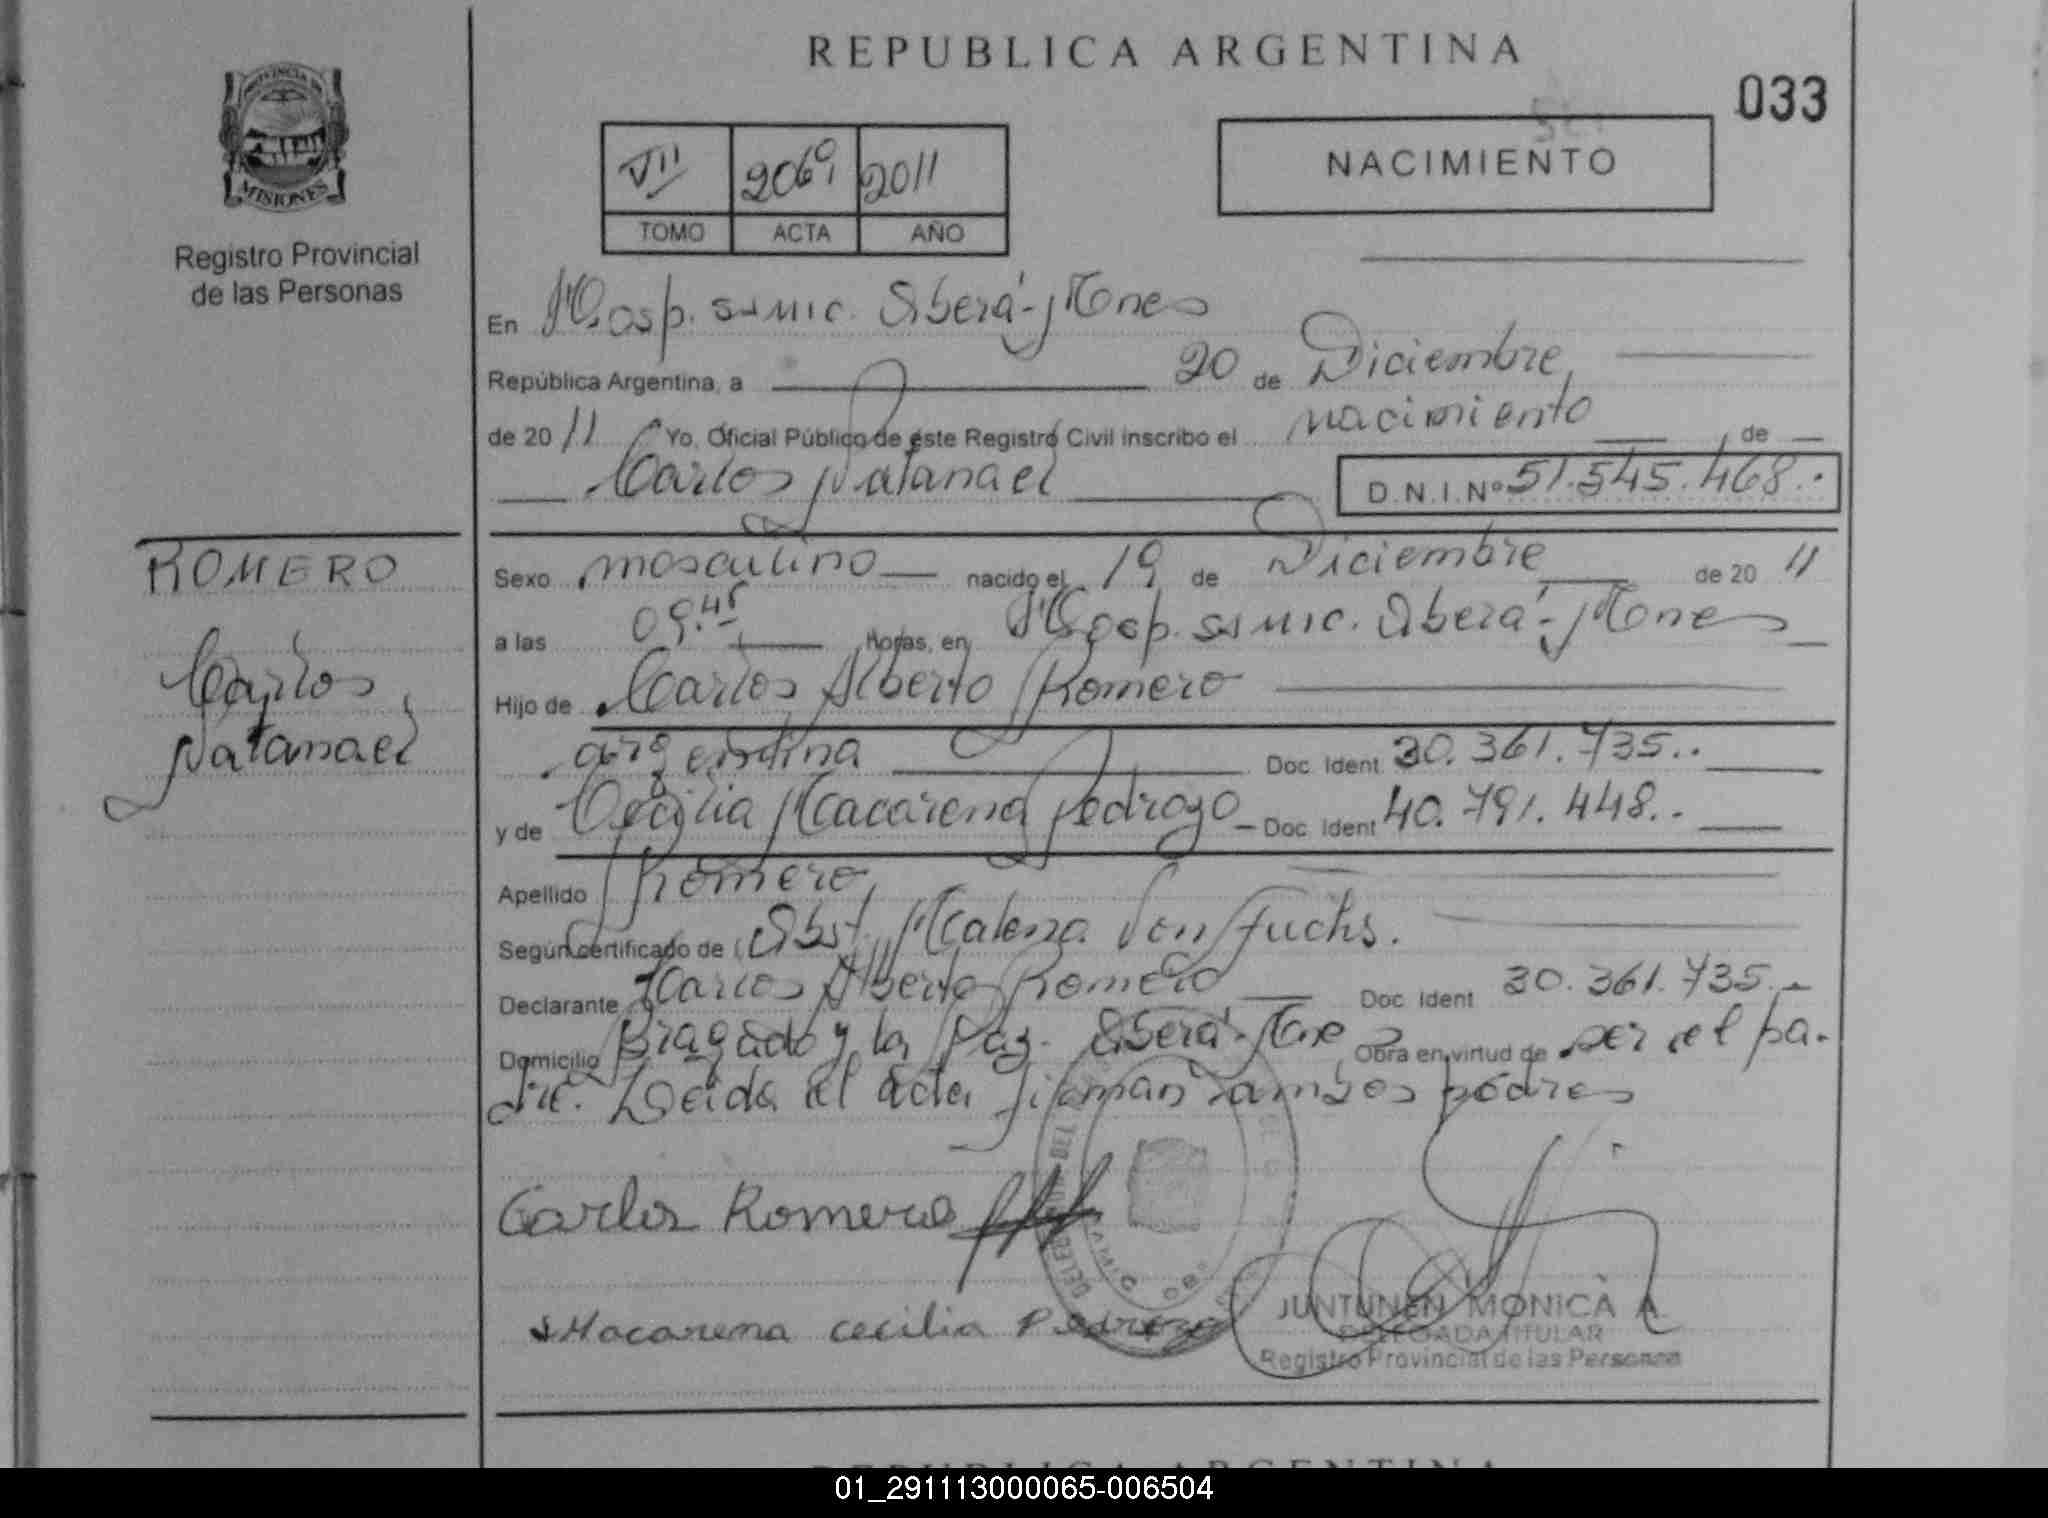 REPUBLICA ARGENTINA
033
PROVINCIA DE
MISIONES
Registro Provincial
de las Personas
VII 2069 2011
TOMO ACTA AÑO
NACIMIENTO
En Hosp. SAMIC. Oberá - Mones
República Argentina, a 20 de Diciembre
de 2011 Yo, Oficial Público de este Registro Civil inscribo el nacimiento de
Carlos Natanael
D.N.I.Nº 51.545.468.
ROMERO
Carlos
Natanael
Sexo masculino nacido el 19 de Diciembre de 2011
a las 09.45 Horas, en Hosp. SAMIC. Oberá - Mones
Hijo de Carlos Alberto Romero
argentina Doc. Ident. 30.361.735..
y de Cecilia Macarena Pedrozo Doc. Ident 40.791.448..
Apellido Romero
Según certificado de Obst. Malena Von Fuchs.
Declarante Carlos Alberto Romero Doc. Ident 30.361.735.
Domicilio Bragado y la Paz - Oberá - Mnes Obra en virtud de ser el pa-
dre. Leida el acta firman ambos padres
Carlos Romero
Macarena cecilia Pedrozo
JUNTUNEN MONICA A.
DELEGADA TITULAR
Registro Provincial de las Personas
REPUBLICA ARGENTINA
01_291113000065-006504